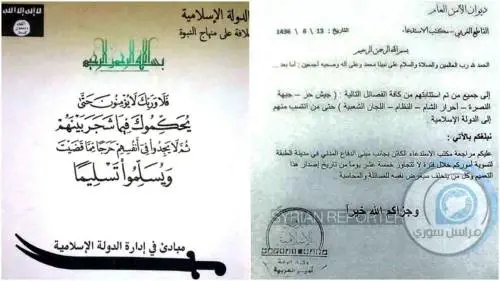 لا إله إلا الله
الله
رسول
محمد
الدولة الإسلامية
خلافة على منهاج النبوة
بسم الله الرحمن الرحيم
فلا وربك لا يؤمنون حتى
يحكموك فيما شجر بينهم
ثم لا يجدوا في أنفسهم حرجا مما قضيت
ويسلموا تسليما
مبادئ في إدارة الدولة الإسلامية
ديوان الأمن العام
القاطع الغربي - مكتب الاستدعاء
التاريخ : 13 / 6 / 1436
بسم الله الرحمن الرحيم
الحمد لله رب العالمين والصلاة والسلام على نبينا محمد وعلى آله وصحبه أجمعين : أما بعد ...
إلى جميع من تم استتابتهم من كافة الفصائل التالية : ( جيش حر - جبهة
النصرة - أحرار الشام - النظام - اللجان الشعبية ) حتى من انتسب منهم
إلى الدولة الإسلامية
نبلغكم بالآتي :
عليكم مراجعة مكتب الاستدعاء الكائن بجانب مبنى الدفاع المدني في مدينة الطبقة
لتسوية أموركم خلال فترة لا تتجاوز خمسة عشر يوما من تاريخ إصدار هذا
التعميم وكل من يتخلف سيعرض نفسه للمسائلة والمحاسبة
وجزاكم الله خيراً
SYRIAN REPORTER
مراسل سوري